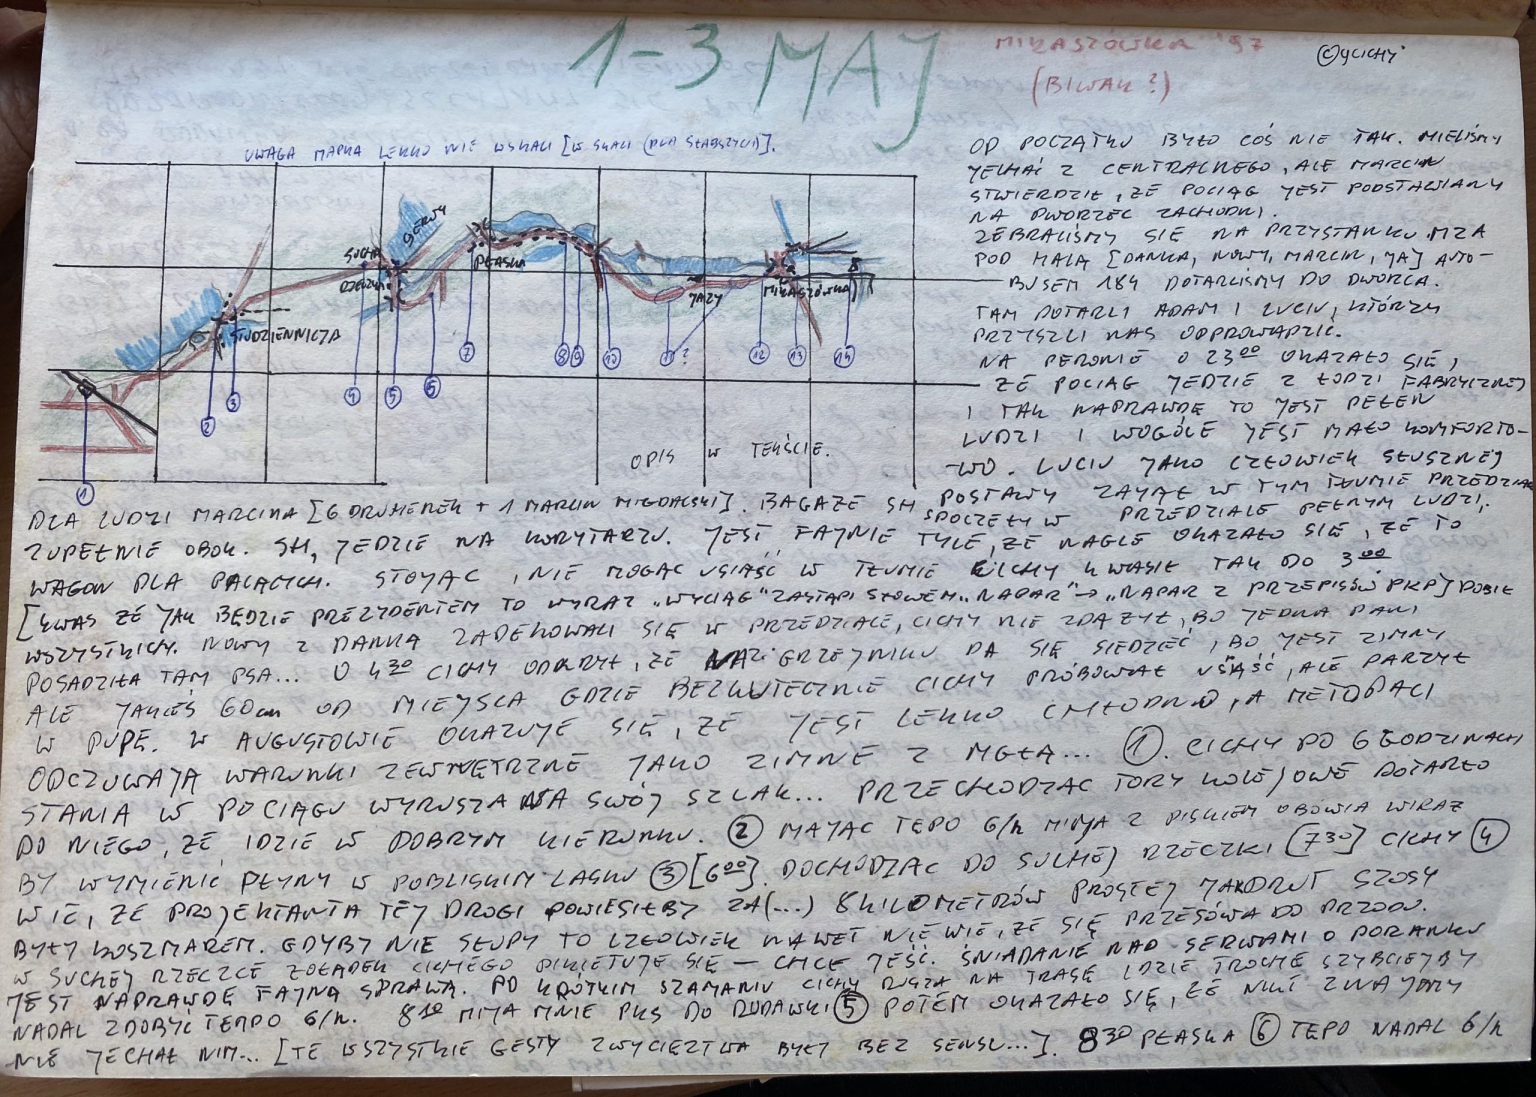 1-3 MAJ
MIKASZÓWKA '97
(BIWAK?)
©YCICHY
UWAGA MAPKA LEKKO NIE W SKALI [W SKALI (DLA SŁABSZYCH)].
SUCHA
RZECZKA
SERWY
PŁASKA
STUDZIENNICZA
JAZY
MIKASZÓWKA
1
2
3
4
5
6
7
8
9
10
11 ?
12
13
14
OPIS W TEKŚCIE.
OD POCZĄTKU BYŁO COŚ NIE TAK. MIELIŚMY
JECHAĆ Z CENTRALNEGO, ALE MARCIN
STWIERDZIŁ, ŻE POCIĄG JEST PODSTAWIANY
NA DWORZEC ZACHODNI.
ZEBRALIŚMY SIĘ NA PRZYSTANKU MZA
POD HALĄ [DANKA, NOWY, MARCIN, JA] AUTO-
BUSEM 184 DOTARLIŚMY DO DWORCA.
TAM DOTARLI ADAM I LUCIU, KTÓRZY
PRZYSZLI NAS ODPROWADZIĆ.
NA PERONIE O 23⁰⁰ OKAZAŁO SIĘ,
ŻE POCIĄG JEDZIE Z ŁODZI FABRYCZNEJ
I TAK NAPRAWDĘ TO JEST PEŁEN
LUDZI I WOGÓLE JEST MAŁO KOMFORTO-
-WO. LUCIU JAKO CZŁOWIEK SŁUSZNEJ
POSTAWY ZAJĄŁ W TYM TŁUMIE PRZEDZIAŁ
DLA LUDZI MARCINA [6 DRUHENEK + 1 MARCIN MIGDALSKI]. BAGAŻE SH SPOCZĘŁY W PRZEDZIALE PEŁNYM LUDZI,
ZUPEŁNIE OBOK. SH, JEDZIE NA KORYTARZU. JEST FAJNIE TYLE, ŻE NAGLE OKAZAŁO SIĘ, ŻE TO
WAGON DLA PALĄCYCH. STOJĄC, NIE MOGĄC USIĄŚĆ W TŁUMIE CICHY KWASIŁ TAK DO 3⁰⁰
[KWAS ŻE JAK BĘDZIE PREZYDENTEM TO WYRAZ „WYCIĄG" ZASTĄPI SŁOWEM „NAPAR" → „NAPAR Z PRZEPISÓW PKP] DOBIŁ
WSZYSTKICH. NOWY Z DANKĄ ZADEKOWALI SIĘ W PRZEDZIALE, CICHY NIE ZDĄŻYŁ, BO JEDNA PANI
POSADZIŁA TAM PSA... O 4³⁰ CICHY ODKRYŁ, ŻE NA GRZEJNIKU DA SIĘ SIEDZIEĆ, BO JEST ZIMNY
ALE JAKIEŚ 60cm OD MIEJSCA GDZIE BEZSKUTECZNIE CICHY PRÓBOWAŁ USIĄŚĆ, ALE PARZYŁ
W PUPĘ. W AUGUSTOWIE OKAZUJE SIĘ, ŻE JEST LEKKO CHŁODNO, A METODACI
ODCZUWAJĄ WARUNKI ZEWNĘTRZNE JAKO ZIMNE Z MGŁĄ... ①. CICHY PO 6 GODZINACH
STANIA W POCIĄGU WYRUSZA NA SWÓJ SZLAK... PRZECHODZĄC TORY KOLEJOWE DOTARŁO
DO NIEGO, ŻE IDZIE W DOBRYM KIERUNKU. ② MAJĄC TEPO 6/h MIJA Z PISKIEM OBÓWIA WIRAŻ
BY WYMIENIĆ PŁYNY W POBLISKIM LASKU ③ [6⁰⁰]. DOCHODZĄC DO SUCHEJ RZECZKI [7³⁰] CICHY ④
WIE, ŻE PROJEKTANTA TEJ DROGI POWIESIŁBY ZA (...) 8 KILOMETRÓW PROSTEJ JAK DRUT SZOSY
BYŁY KOSZMAREM. GDYBY NIE SŁUPY TO CZŁOWIEK NAWET NIE WIE, ŻE SIĘ PRZESÓWA DO PRZODU.
W SUCHEJ RZECZCE ŻOŁĄDEK CICHEGO PIKIETUJE SIĘ — CHCE JEŚĆ. ŚNIADANIE NAD SERWAMI O PORANKU
JEST NAPRAWDĘ FAJNĄ SPRAWĄ. PO KRÓTKIM SZAMANIU CICHY RUSZA NA TRASĘ IDZIE TROCHĘ SZYBCIEJ BY
NADAL ZDOBYĆ TEMPO 6/h. 8¹⁰ MIJA MNIE PKS DO RUDAWKI ⑤ POTEM OKAZAŁO SIĘ, ŻE NIKT ZNAJOMY
NIE JECHAŁ NIM... [TE WSZYSTKIE GESTY ZWYCIĘZTWA BYŁY BEZ SENSU...]. 8³⁰ PŁASKA ⑥ TEPO NADAL 6/h